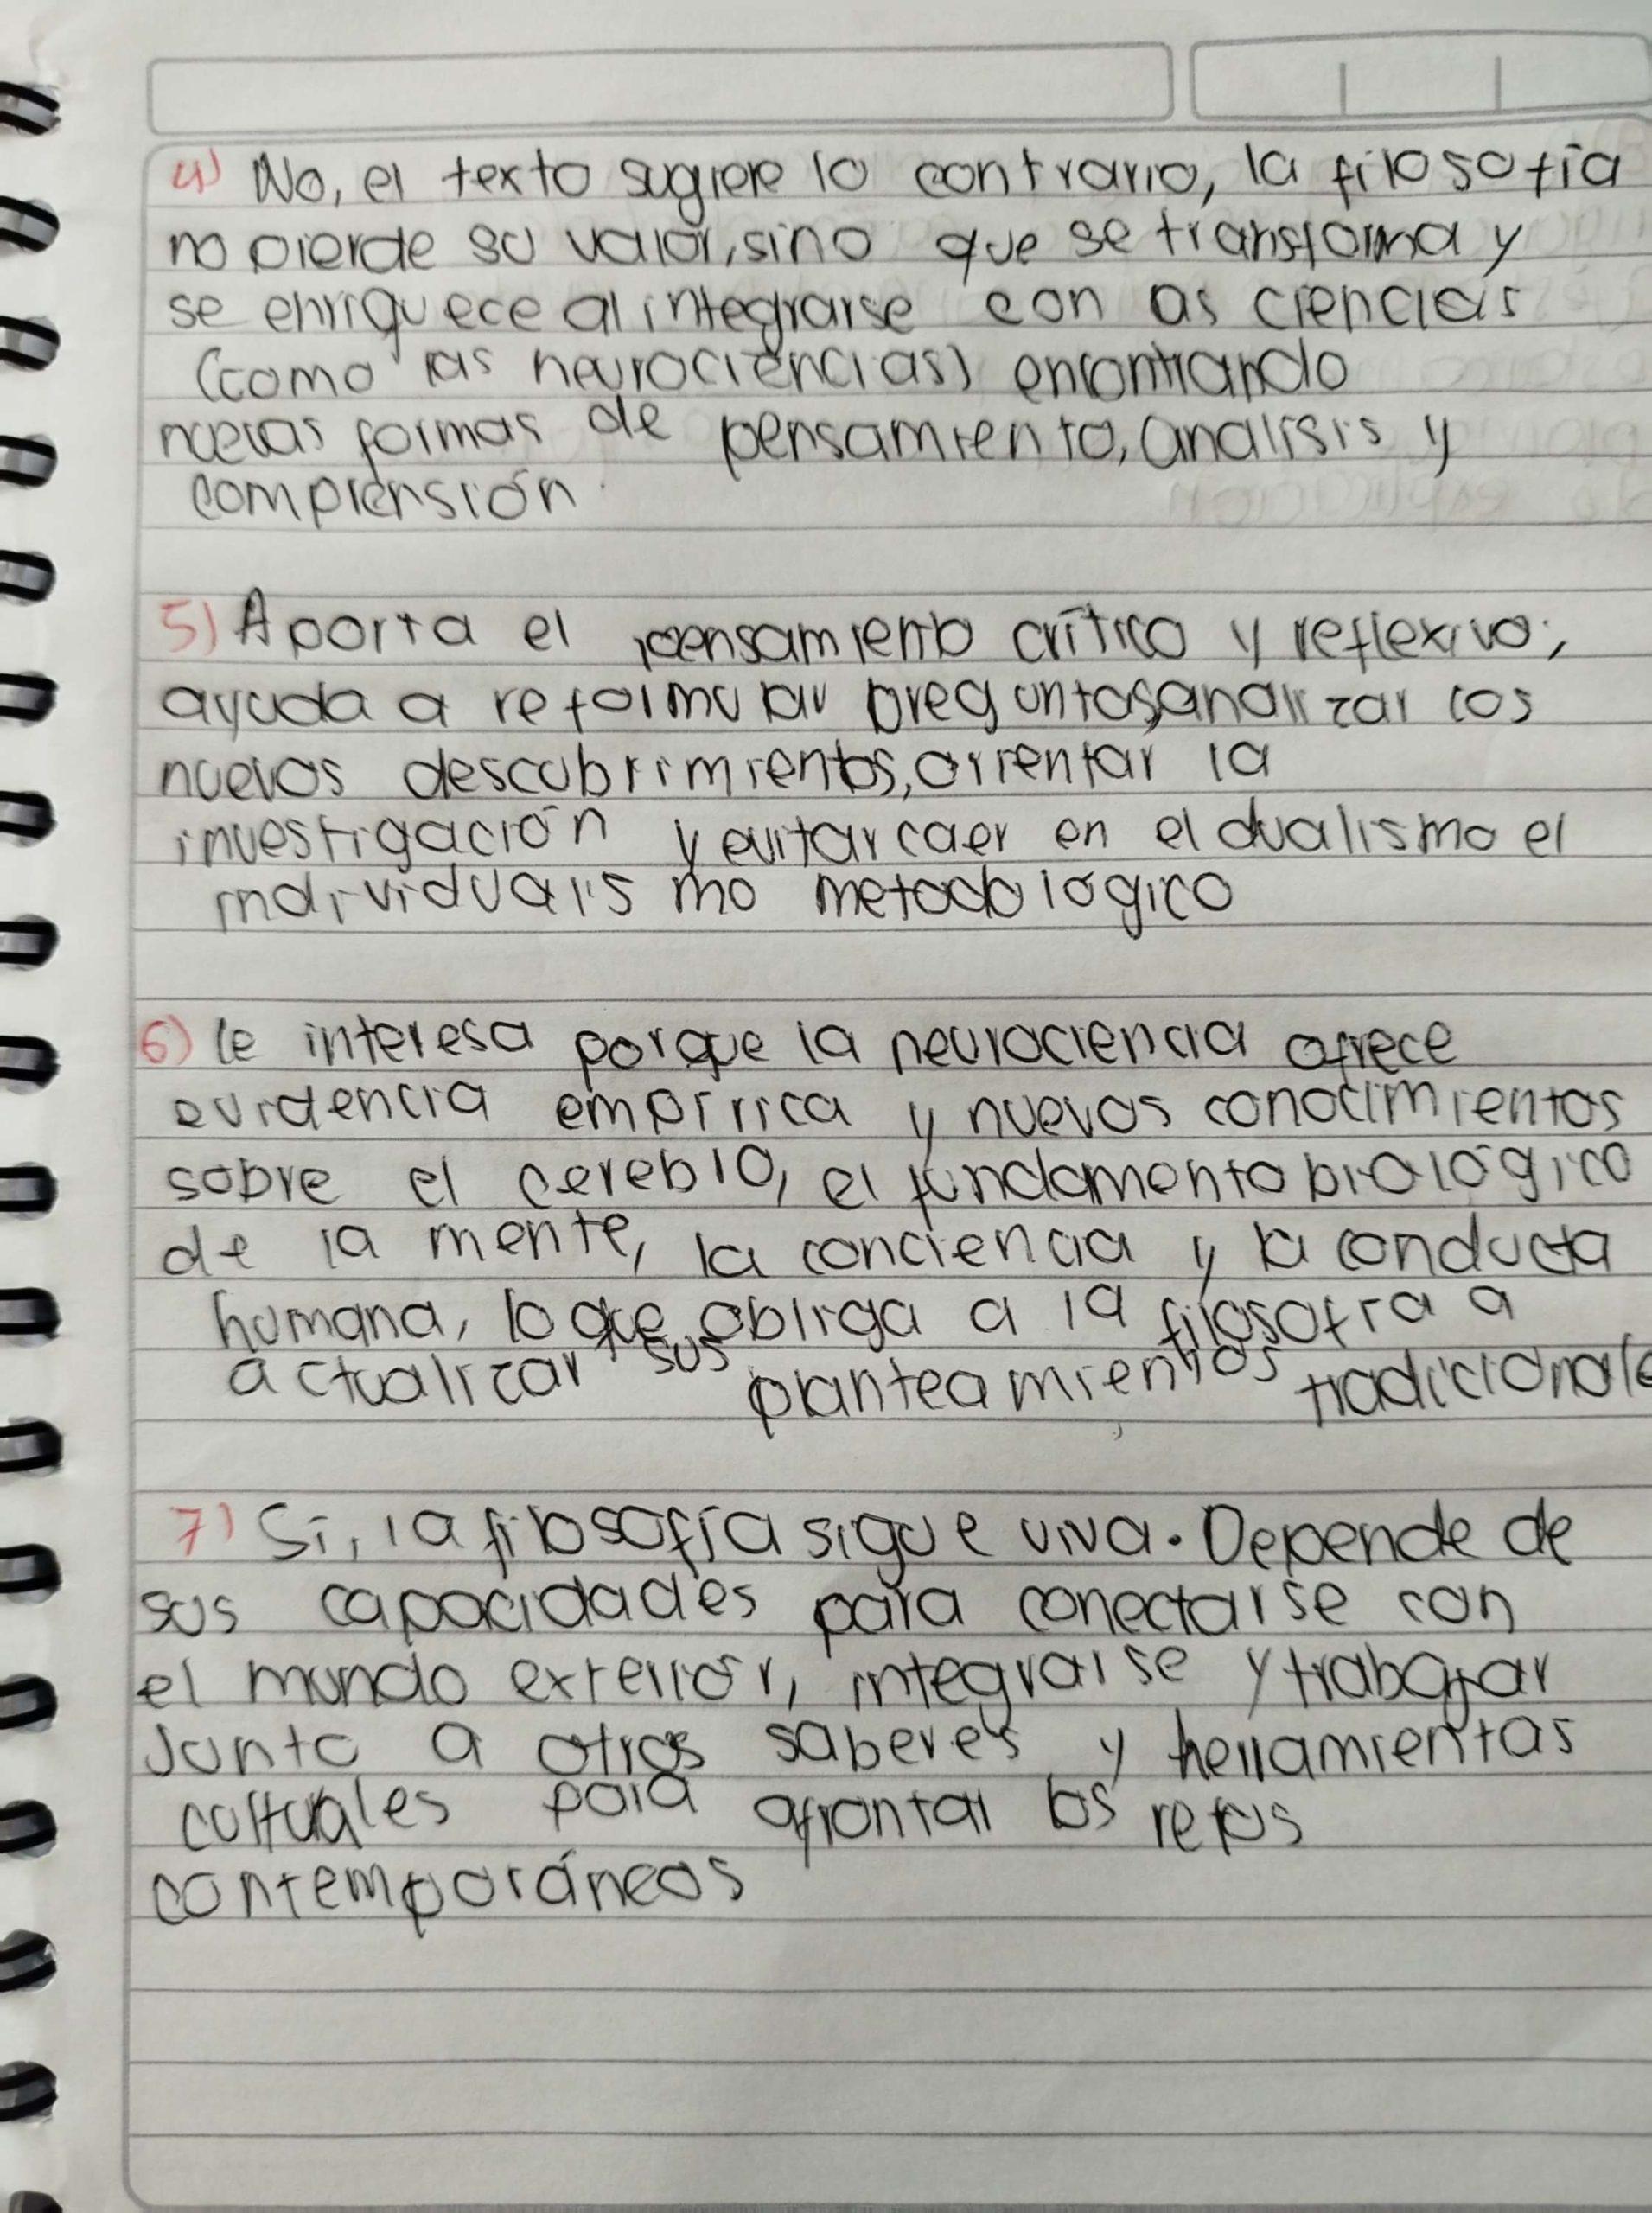 4) No, el texto sugiere lo contrario, la filosofía
no pierde su valor, sino que se transforma y
se enriquece al integrarse con as ciencias
(como las neurociencias) encontrando
nuevas formas de pensamiento, analisis y
comprensión.
5) Aporta el pensamiento crítico y reflexivo;
ayuda a reformular preguntas, analizar los
nuevos descubrimientos, orientar la
investigación y evitar caer en el dualismo el
individualismo metodologico
6) le interesa porque la neurociencia ofrece
evidencia empirica y nuevos conocimientos
sobre el cerebro, el fundamento biológico
de la mente, la conciencia y la conducta
humana, lo que obliga a la filosofia a
actualizar sus planteamientos tradicionale
7) Sí, la filosofía sigue viva. Depende de
sus capacidades para conectarse con
el mundo exterior, integrarse y trabajar
Junto a otros saberes y herramientas
culturales para afrontar los retos
contemporáneos